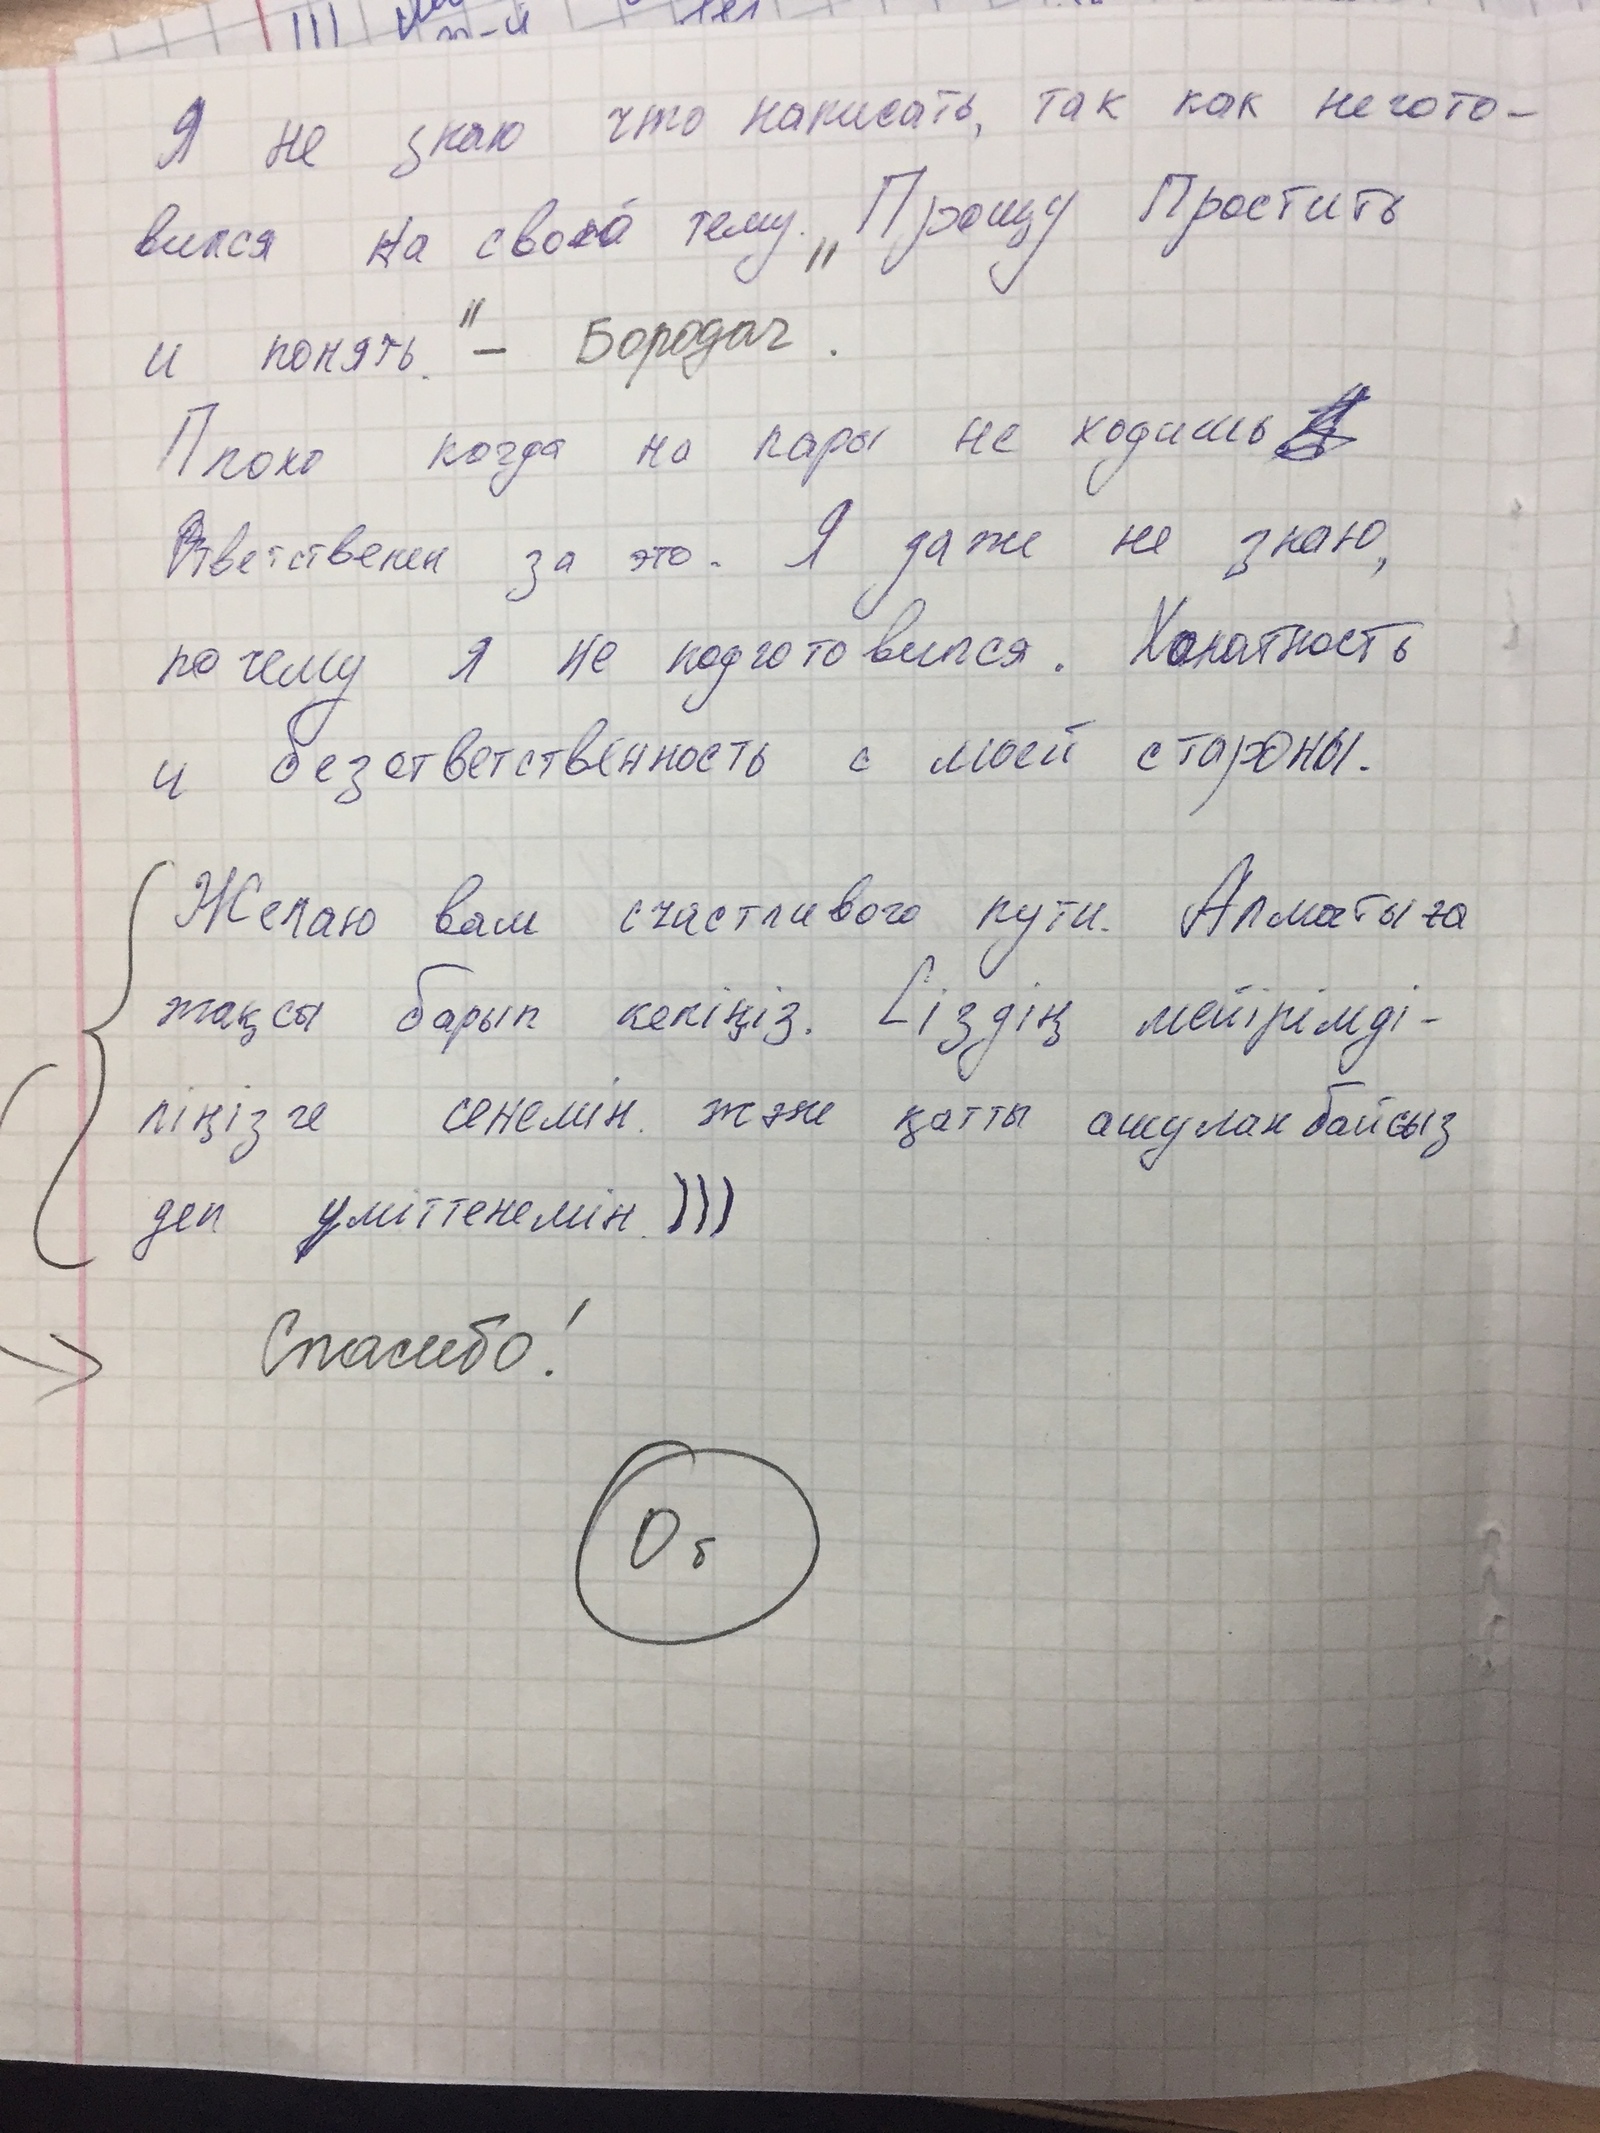 Я не знаю что написать, так как негото-
вился на свою тему. „Прощу Простить
и понять." – Бородач.
Плохо когда на пары не ходишь
Ответственен за это. Я даже не знаю,
почему я не подготовился. Халатность
и безответственность с моей стороны.
Желаю вам счастливого пути. Алматыға
жақсы барып келіңіз. Сіздің мейірімді-
ліңізге сенемін. және қатты ашуланбайсыз
деп үміттенемін.)))
Спасибо!
0б